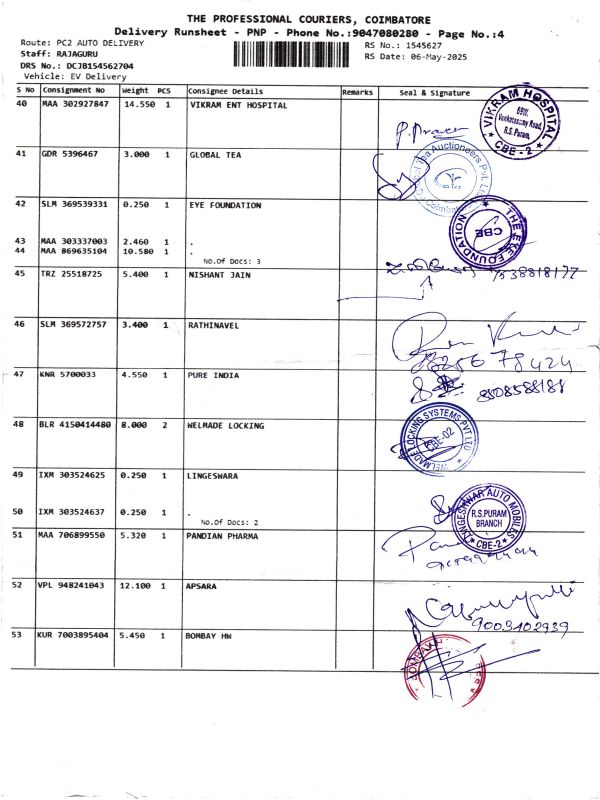 THE PROFESSIONAL COURIERS, COIMBATORE
Delivery Runsheet - PNP - Phone No.:9047080280 - Page No.:4
Route: PC2 AUTO DELIVERY
RS No.: 1545627
Staff: RAJAGURU
RS Date: 06-May-2025
DRS No.: DCJB154562704
Vehicle: EV Delivery
S No Consignment No Weight PCS Consignee Details Remarks Seal & Signature
40 MAA 302927847 14.550 1 VIKRAM ENT HOSPITAL
VIKRAM HOSPITAL
Venkatasamy Road,
R.S. Puram,
CBE - 2
41 GDR 5396467 3.000 1 GLOBAL TEA
Tea Auctioneers Pvt. Ltd
Coimbatore
42 SLM 369539331 0.250 1 EYE FOUNDATION
THE EYE FOUNDATION
CBE
43 MAA 303337003 2.460 1 .
44 MAA 869635104 10.580 1 .
No.Of Docs: 3
45 TRZ 25518725 5.400 1 NISHANT JAIN
46 SLM 369572757 3.400 1 RATHINAVEL
8256 78424
47 KNR 5700033 4.550 1 PURE INDIA
48 BLR 4150414480 8.000 2 WELMADE LOCKING
WELMADE LOCKING SYSTEMS PVT LTD
CBE-02
49 IXM 303524625 0.250 1 LINGESWARA
LINGESHWAR AUTO MOBILES
R.S.PURAM
BRANCH
CBE-2
50 IXM 303524637 0.250 1 .
No.Of Docs: 2
51 MAA 706899550 5.320 1 PANDIAN PHARMA
52 VPL 948241043 12.100 1 APSARA
9003402939
53 KUR 7003895404 5.450 1 BOMBAY HW